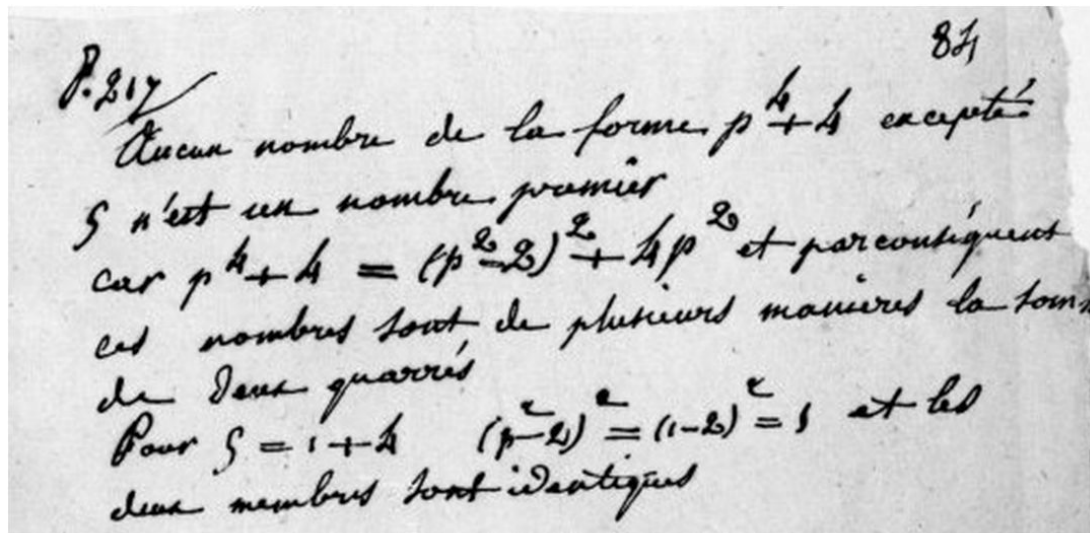 84
P. 217
Aucun nombre de la forme p⁴+4 excepté
5 n'est un nombre premier
car p⁴+4 = (p²-2)²+4p² et parconséquent
ces nombres sont de plusieurs manières la som
de deux quarrés
Pour 5 = 1+4 (p²-2)² = (1-2)² = 1 et les
deux membres sont identiques